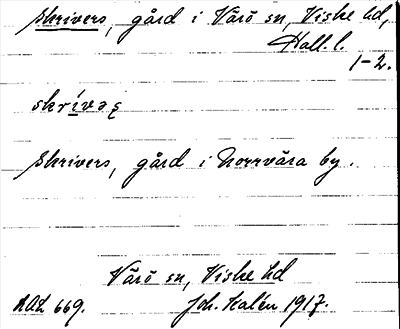 Skrivers, gård i Värö sn, Viske hd,
Hall. l.
1-2.
skrívəʂ
Skrivers, gård i Norrvära by.
Värö sn, Viske hd
Joh. Kalén 1917.
669.